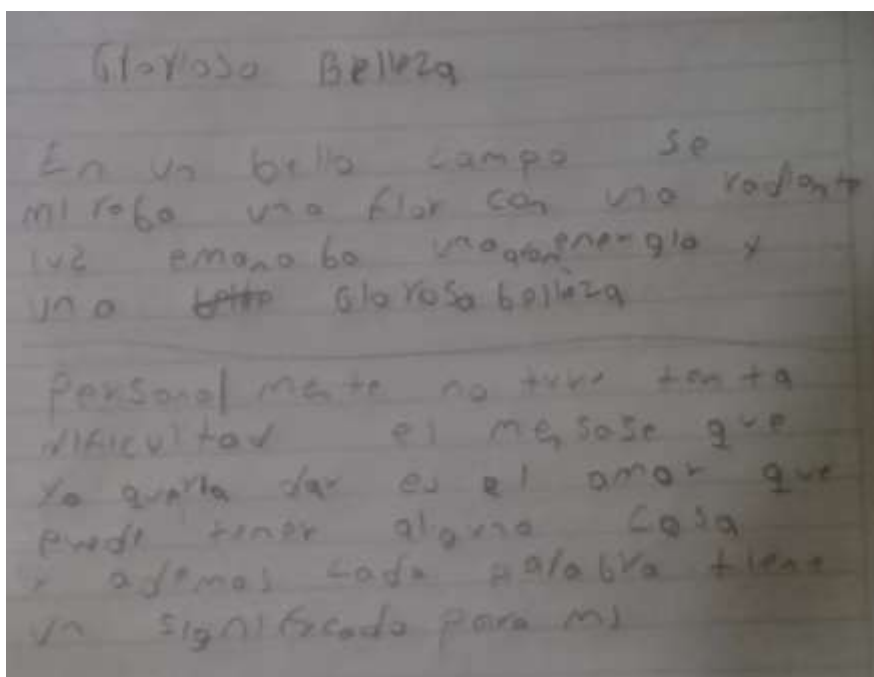 Glorioso Belleza
En un bello campo se
miroba una flor con una radiante
luz emanaba una gran energia y
una Glorosa belleza
Personal mente no tuve tanta
dificultad el mensaje que
Yo queria dar es el amor que
puede tener alguna cosa
y ademas cada palabra tiene
un significado para mi